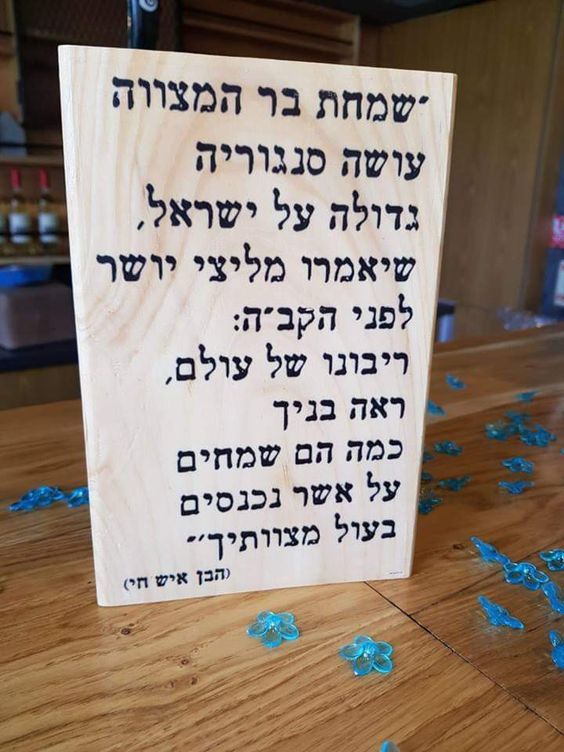 ״שמחת בר המצווה
עושה סנגוריה
גדולה על ישראל,
שיאמרו מליצי יושר
לפני הקב״ה:
ריבונו של עולם,
ראה בניך
כמה הם שמחים
על אשר נכנסים
בעול מצוותיך״
(הבן איש חי)